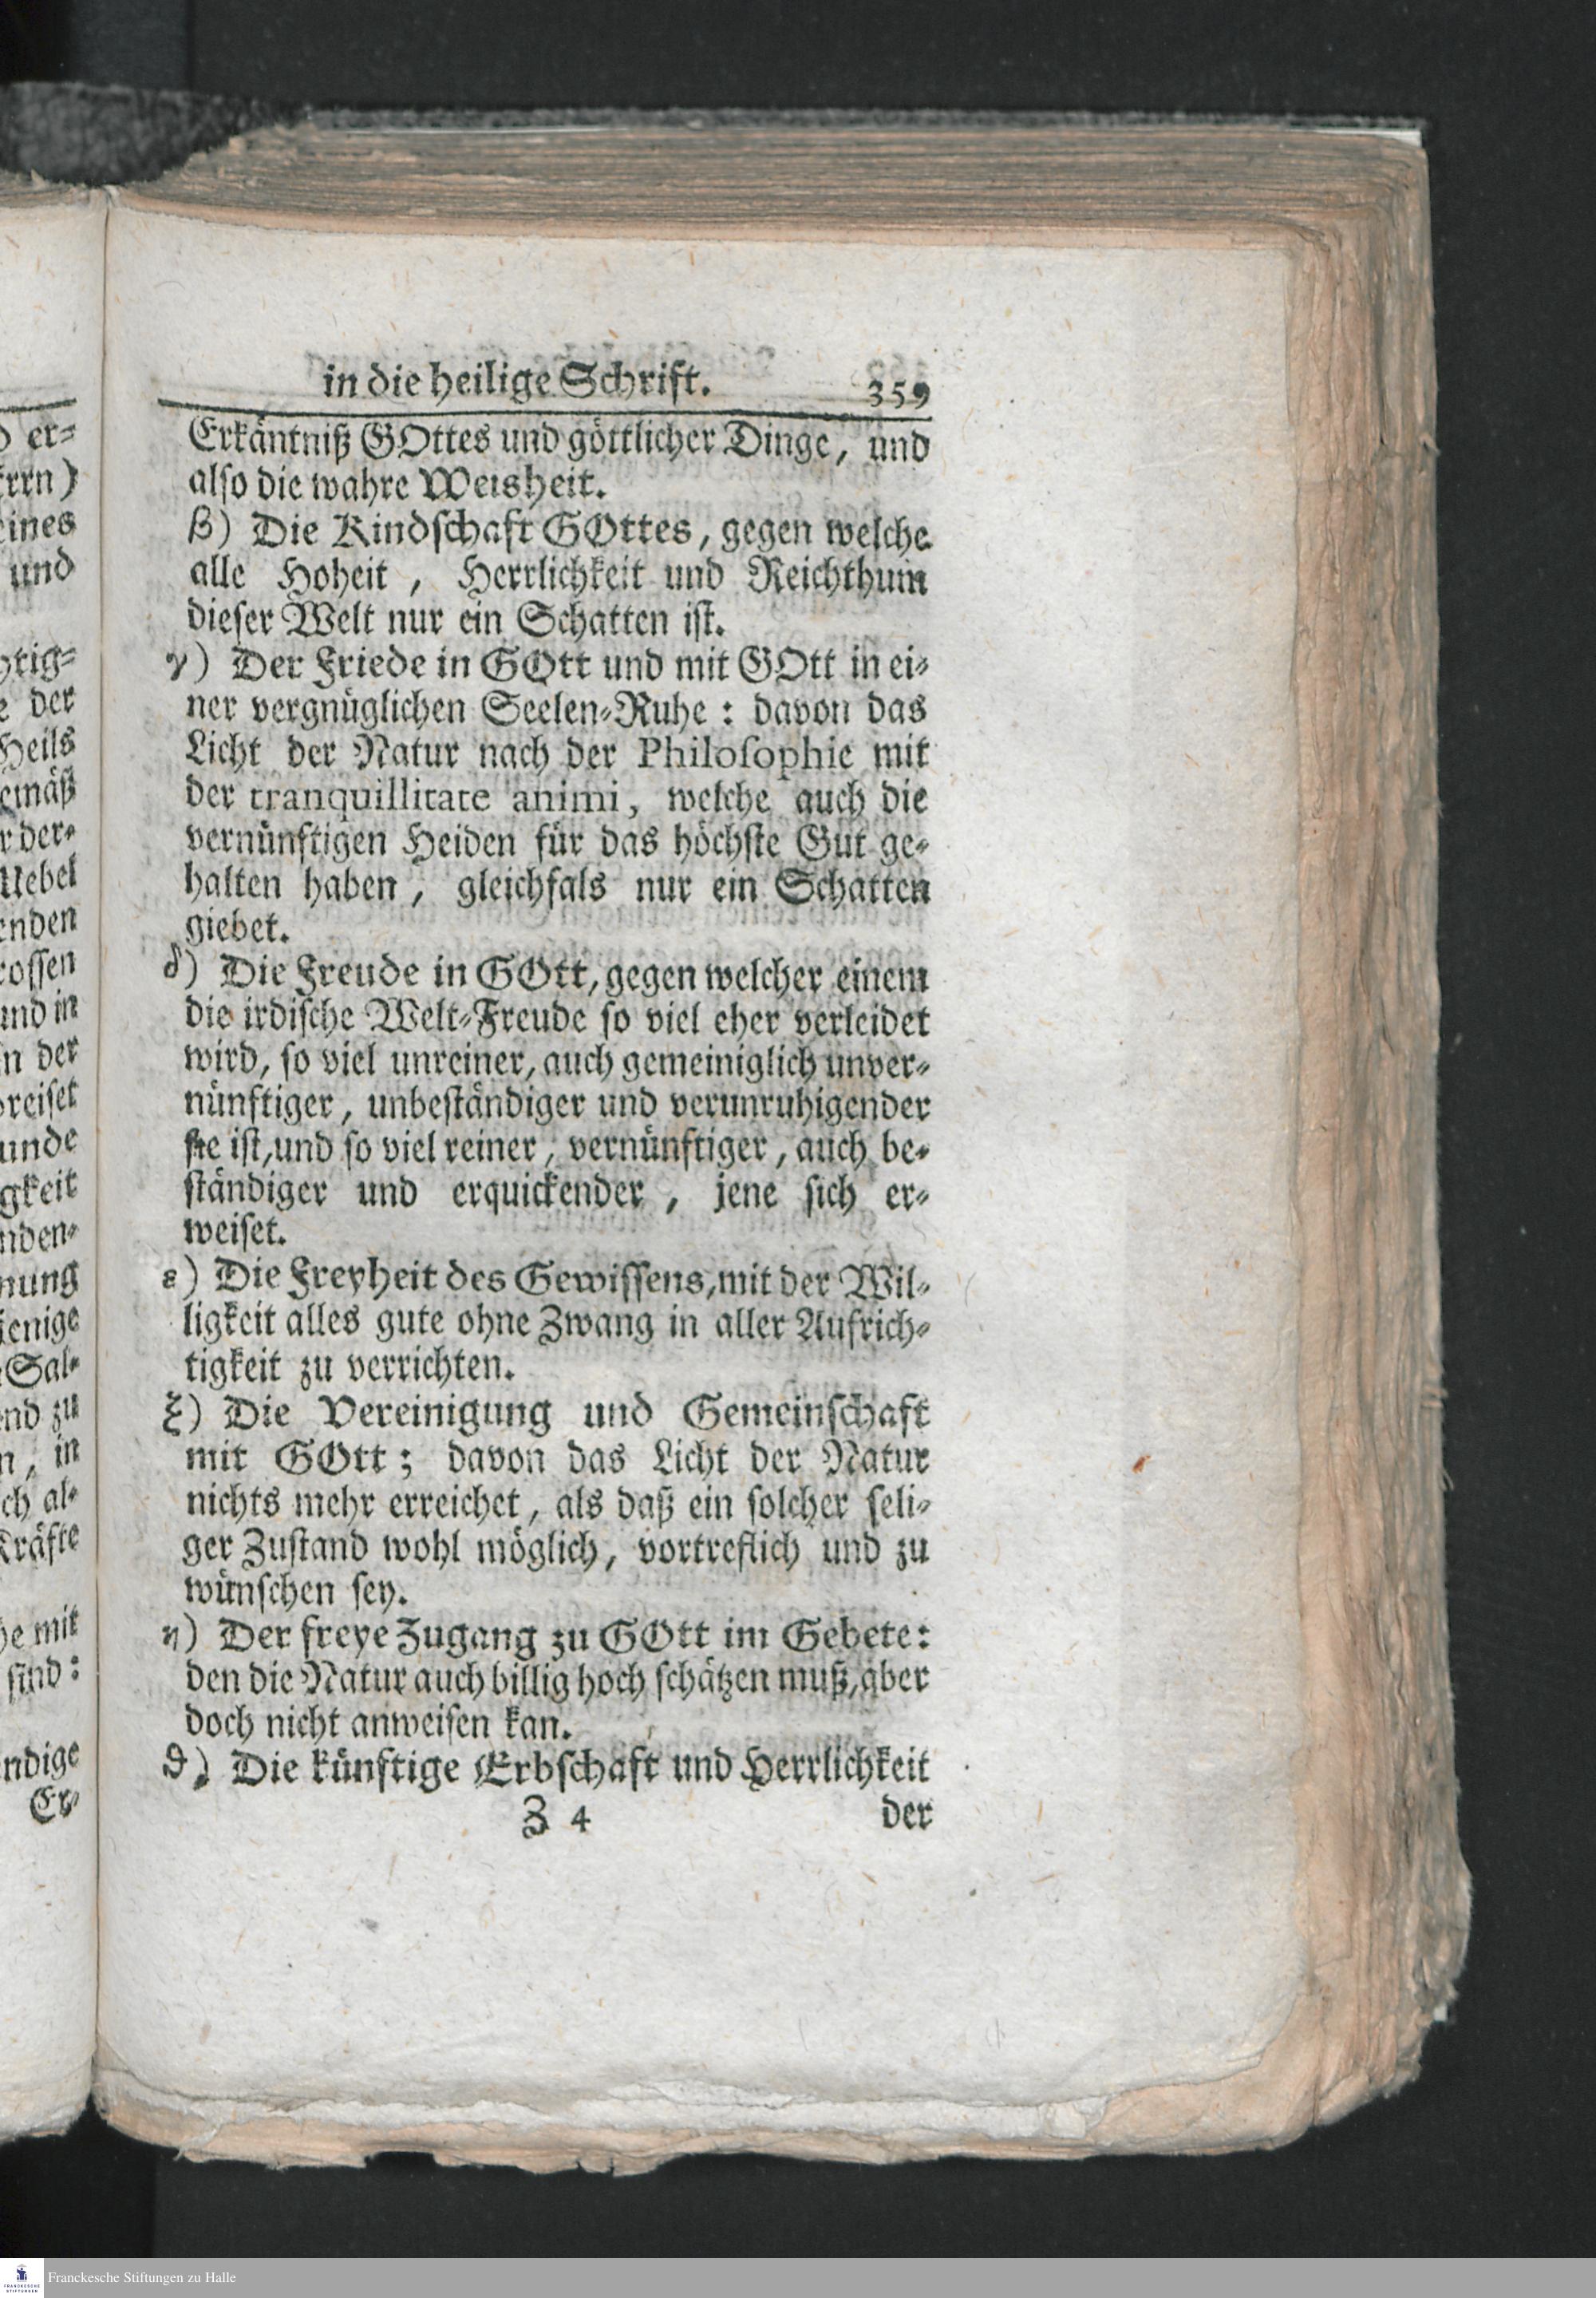 in die heilige Schrift. 359
Erkäntniß GOttes und göttlicher Dinge, und
also die wahre Weisheit.
β) Die Kindschaft GOttes, gegen welche
alle Hoheit, Herrlichkeit und Reichthum
dieser Welt nur ein Schatten ist.
γ) Der Friede in GOtt und mit GOtt in ei-
ner vergnüglichen Seelen-Ruhe: davon das
Licht der Natur nach der Philosophie mit
der tranquillitate animi, welche auch die
vernünftigen Heiden für das höchste Gut ge-
halten haben, gleichfals nur ein Schatten
giebet.
δ) Die Freude in GOtt, gegen welcher einem
die irdische Welt-Freude so viel eher verleidet
wird, so viel unreiner, auch gemeiniglich unver-
nünftiger, unbeständiger und verunruhigender
sie ist, und so viel reiner, vernünftiger, auch be-
ständiger und erquickender, jene sich er-
weiset.
ε) Die Freyheit des Gewissens, mit der Wil-
ligkeit alles gute ohne Zwang in aller Aufrich-
tigkeit zu verrichten.
ξ) Die Vereinigung und Gemeinschaft
mit GOtt; davon das Licht der Natur
nichts mehr erreichet, als daß ein solcher seli-
ger Zustand wohl möglich, vortreflich und zu
wünschen sey.
η) Der freye Zugang zu GOtt im Gebete:
den die Natur auch billig hoch schätzen muß, aber
doch nicht anweisen kan.
ϑ) Die künftige Erbschaft und Herrlichkeit
Z 4 der
er-
errn)
eines
und
htig-
der
Heils
gemäß
der-
Uebel
enden
rossen
und in
der
preiset
unde
gkeit
nden-
nung
jenige
Sal-
nd zu
in
ch al-
Kräfte
mit
sind:
ndige
Er-
Franckesche Stiftungen zu Halle
FRANCKESCHE
STIFTUNGEN